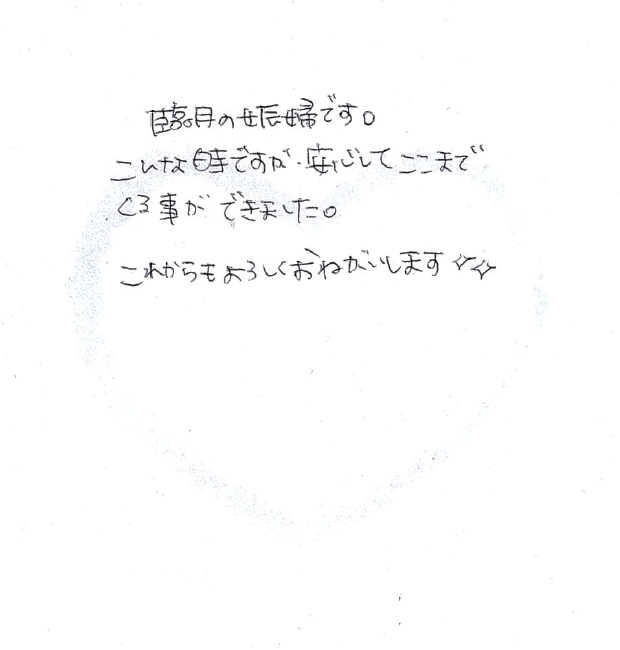 臨月の妊婦です。
こんな時ですが、安心してここまで
くる事ができました。
これからもよろしくおねがいします☆☆